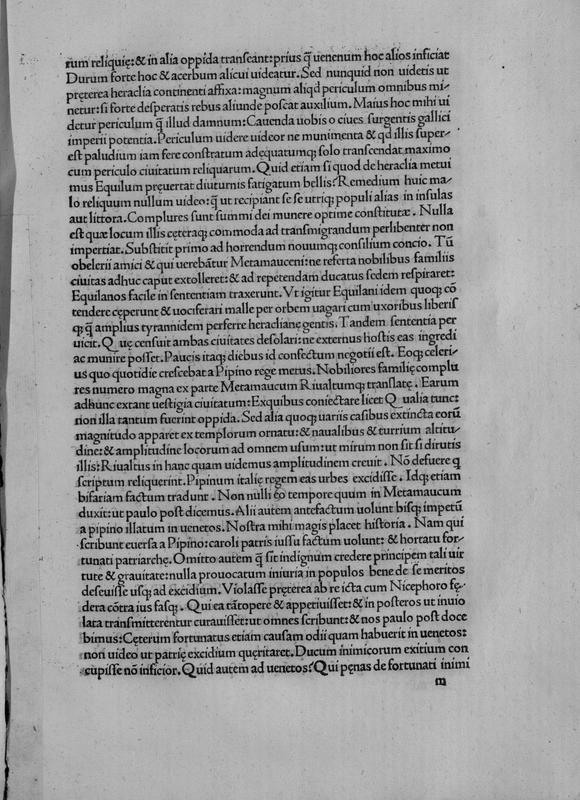 rum reliquię:& in alia oppida transeant:prius q̃ uenenum hoc alios inficiat
Durum forte hoc & acerbum alicui uideatur. Sed nunquid non uidetis ut
pręterea heraclia continenti affixa:magnum aliqd periculum omnibus mi⸗
netur:si forte desperatis rebus aliunde poscat auxilium. Maius hoc mihi ui
detur periculum q̃ illud damnum: Cauenda uobis o ciues surgentis gallici
imperii potentia. Periculum uidere uideor ne munimenta & qd illis super⸗
est paludium iam fere constratum adequatumq; solo transcendat maximo
cum periculo ciuitatum reliquarum. Quid etiam si quod de heraclia metui
mus Equilum preuertat diuturnis fatigatum bellis? Remedium huic ma⸗
lo reliquum nullum uideo:q̃ ut recipiant se se utriq; populi alias in insulas
aut littora. Complures sunt summi dei munere optime constitutæ. Nulla
est quæ locum illis cęteraq; commoda ad transmigrandum perlibenter non
impertiat. Substitit primo ad horrendum nouumq; consilium concio. Tū
obelerii amici & qui uerebātur Metamauceni:ne referta nobilibus familiis
ciuitas adhuc caput extolleret:& ad repetendam ducatus sedem respiraret:
Equilanos facile in sententiam traxerunt. Vt igitur Equilani idem quoq; cō
tendere cęperunt & uociferari malle per orbem uagari cum uxoribus liberis
q; q̃ amplius tyrannidem perferre heraclianę gentis. Tandem sententia per
uicit. Quę censuit ambas ciuitates desolari:ne externus hostis eas ingredi
ac munire posset. Paucis itaq; diebus id confectum negotii est. Eoq; celeri⸗
us quo quotidie crescebat a Pipino rege metus. Nobiliores familię complu
res numero magna ex parte Metamaucum Riualtumq; translatę. Earum
adhunc extant uestigia ciuitatum: Exquibus coniectare licet Qualia tunc:
non illa tantum fuerint oppida. Sed alia quoq; uariis casibus extincta eorū
magnitudo apparet ex templorum ornatu:& naualibus & turrium altitu⸗
dine:& amplitudine locorum ad omnem usum:ut mirum non sit si dirutis
illis: Riualtus in hanc quam uidemus amplitudinem creuit. Nō defuere q
scriptum reliquerint. Pipinum italię regem eas urbes excidisse. Idq; etiam
bifariam factum tradunt. Non nulli eo tempore quum in Metamaucum
duxit:ut paulo post dicemus. Alii autem antefactum uolunt bisq; impetū
a pipino illatum in uenetos. Nostra mihi magis placet historia. Nam qui
scribunt euersa a Pipino:caroli patris iussu factum uolunt: & hortatu for⸗
tunati patriarchę. Omitto autem q̃ sit indignum credere principem tali uir
tute & grauitate:nulla prouocatum iniuria in populos bene de se meritos
deseuisse usq; ad excidium. Violasse pręterea ab re icta cum Nicephoro fę⸗
dera cōtra ius fasq;. Qui ea tātopere & appetiuisset:& in posteros ut inuio
lata transmitterentur curauisset:ut omnes scribunt:& nos paulo post doce
bimus: Cęterum fortunatus etiam causam odii quam habuerit in uenetos:
non uideo ut patrię excidium quęritaret. Ducum inimicorum exitium con
cupisse nō inficior. Quid autem ad uenetos? Qui pęnas de fortunati inimi
m